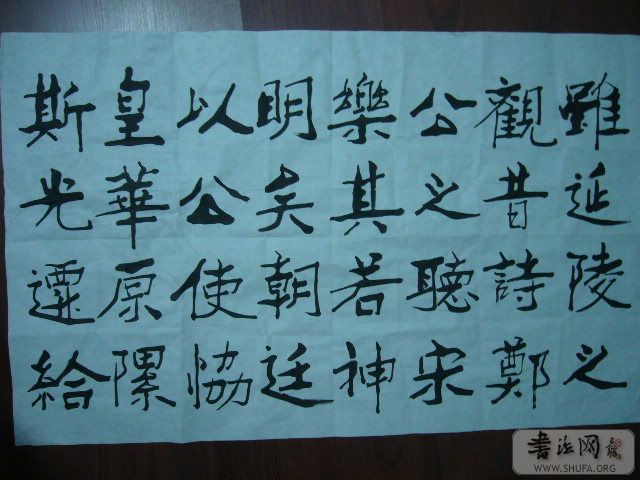 雖延陵之
觀昔詩鄭
公之聽宋
樂其若神
明矣朝廷
以公使恊
皇華原隰
斯光遷給
書法网
WWW.SHUFA.ORG